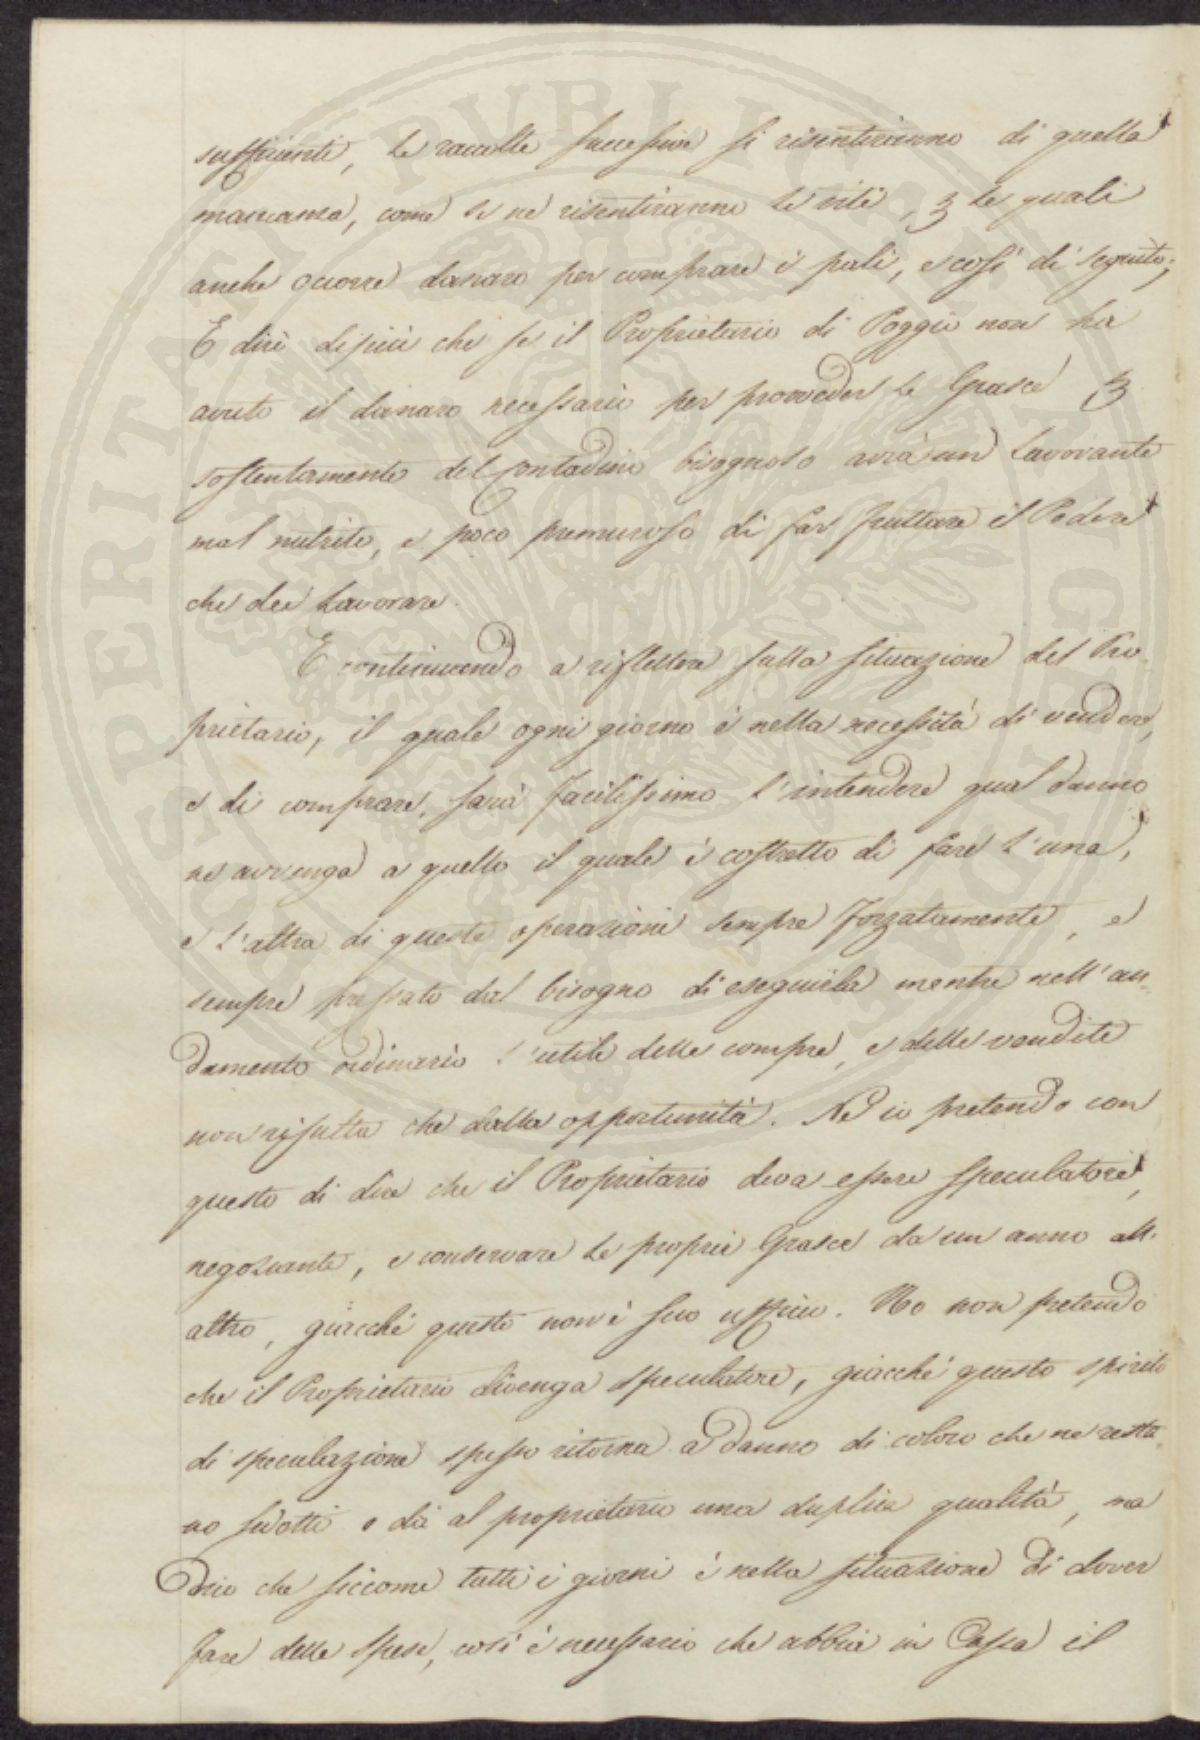 sufficienti, le raccolte successive si risentiranno di quella
mancanza, come se ne risentiranno le viti, 3 le quali
anche occorre danaro per comprare i pali, e così di seguito;
E dirò dipiù che se il Proprietario di Poggio non ha
avuto il danaro necessario per provveder le Grasce 3
sostentamento del Contadino bisognoso avrà un Lavorante
mal nutrito, e poco premuroso di far fruttare il Podere
che dee Lavorare.
E continuando a riflettere sulla situazione del Pro-
prietario, il quale ogni giorno è nella necessità di vendere,
e di comprare, sarà facilissimo l'intendere qual danno
ne avvenga a quello il quale è costretto di fare l'una,
e l'altra di queste operazioni sempre forzatamente, e
sempre pressato dal bisogno di eseguirla mentre nell'an-
damento ordinario l'utile delle compre, e delle vendite
non risulta che dalla opportunità. Nè io pretendo con
questo di dire che il Proprietario deva essere speculatore,
negoziante, e conservare le proprie Grasce da un anno all'
altro, giacchè questo non è suo ufficio. No non pretendo
che il Proprietario divenga speculatore, giacchè questo spirito
di speculazione spesso ritorna a danno di coloro che ne resta-
no sedotti e dà al proprietario una duplice qualità, ma
dico che siccome tutti i giorni è nella situazione di dover
fare delle spese, così è necessario che abbia in Cassa il
SOSPERITATI PVBLICAE AVGENDAE